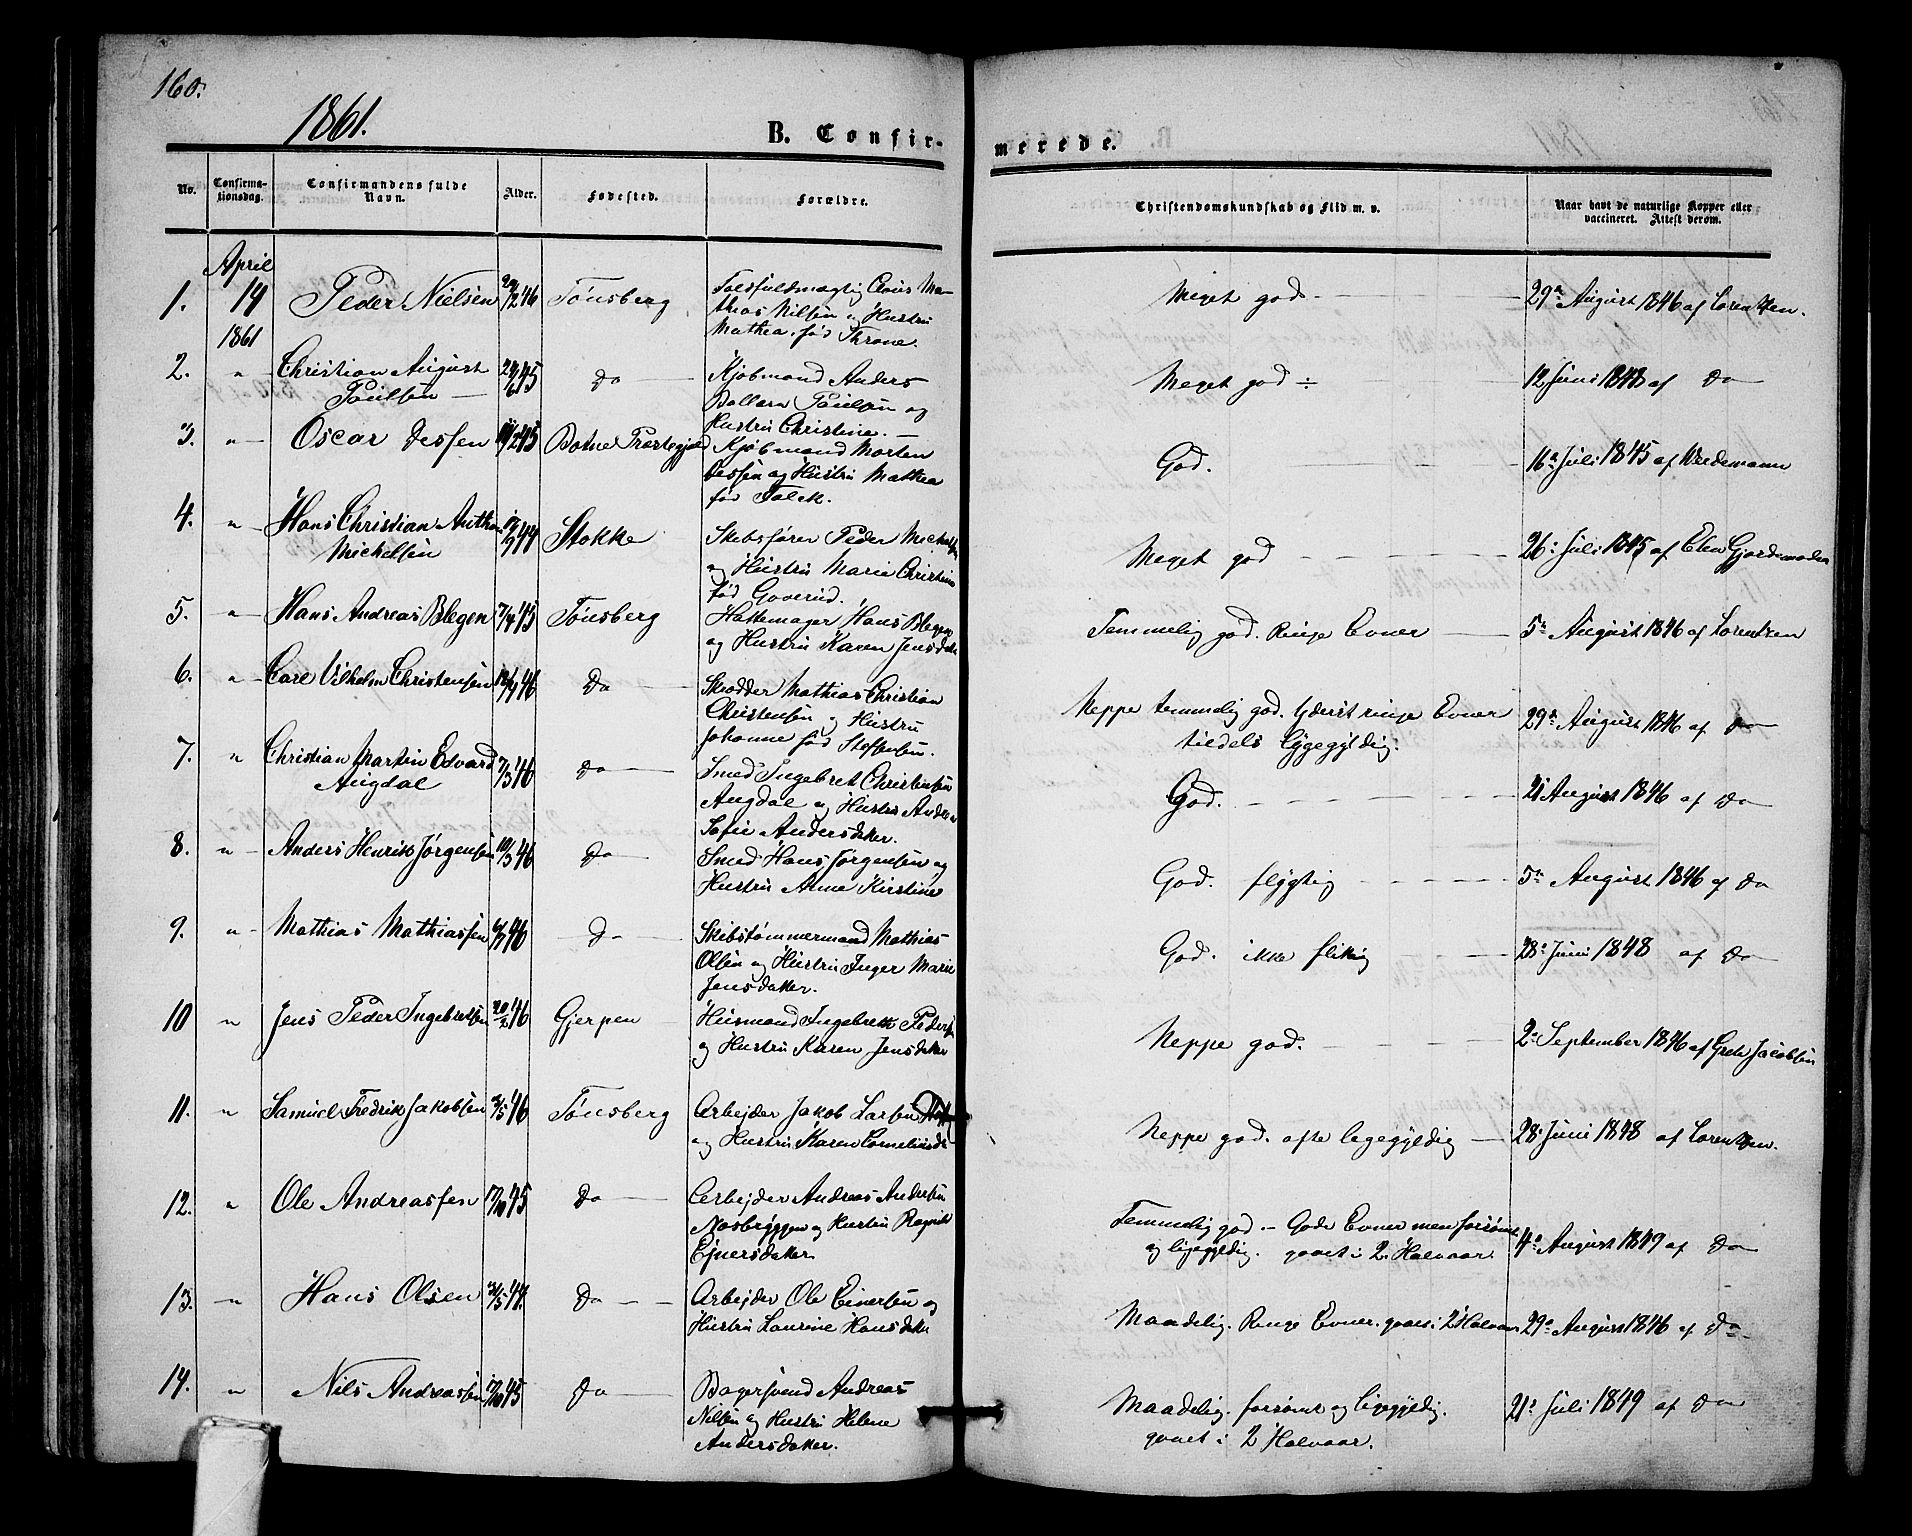 160.
1861.
B. Confir-
merede.
No.
Confirma-
tionsdag.
Confirmandens fulde
Navn.
Alder.
Fødested.
Forældre.
Christendomskundskab og Flid m. v.
Naar havt de naturlige Kopper eller
vaccineret. Attest derom.
April
1. 14 Peder Nielsen Tønsberg
1861
Toldfuldmægtig
Nilsen og Hustru
Mathea, fød Throne.
Meget god
29de August 1846 af Lorentzen.
2. " Christian August
Paulsen
Do
Kjøbmand Anders
Paulsen og
Hustru Christine.
Meget god ÷
12 Juni 1848 af Do
3. " Oscar Dessen Botne Præstegjeld
Kjøbmand Morten
Dessen og Hustru Mathea
fød Falck.
God.
16de Juli 1845 af Wedemann
4. " Hans Christian
Michelsen
Stokke
Skibsfører Peder
og Hustru Marie Christine
fød
Meget god
26. Juli 1845 af
5. " Hans Andreas Blegen 7/4 45 Tønsberg
Hattemager Hans Blegen
og Hustru Karen Jensdatter
Temmelig god. Ringe Evner
5te August 1846 af Lorentzen
6. " Carl Vilhelm Christensen Do
Skrædder Mathias Christian
Christensen og Hustru
Johanne fød Steffensen.
Neppe temmelig god. Yderst ringe Evner
tildels ligegyldig.
29de August 1846 af Do
7. " Christian Martin Edvard
Augdal
7/3 46 Do
Smed Ingebret Christensen
Augdal og Hustru
Sofie Andersdatter.
God.
21 August 1846 af Do
8. " Anders Henrik Jørgensen 10/3 46 Do
Smed Hans Jørgensen og
Hustru Anne Kirstine
God. flygtig
5te August 1846 af Do
9. " Mathias Mathiassen Do
Skibstømmermand Mathias
Olsen og Hustru Inger Marie
Jensdatter.
God. ikke flittig
28. Juni 1848 af Do
10 " Jens Peder Ingebretsen 20/2 46 Gjerpen
Husmand Ingebrett
og Hustru Karen Jensdatter
Neppe god.
2. September 1846 af Grete Jacobsen
11. " Samuel Fredrik Jakobsen Tønsberg
Arbejder Jakob Larsen
og Hustru Karen
Neppe god. ofte ligegyldig
28. Juni 1848 af Lorentzen.
12. " Ole Andreassen Do
Arbejder Andreas Andersen
og Hustru
Ejnersdatter
Temmelig god. - Gode Evner men forsømt
og ligegyldig. gaaet i 2 Halvaar.
4de August 1849 af Do
13. " Hans Olsen Do
Arbejder Ole Einersen og
Hustru Laurine Hansdatter
Maadelig. Ringe Evner. gaaet i 2 Halvaar
29de August 1846 af Do
14. " Nils Andreassen Do
Bagersvend Andreas
Nilsen og Hustru Helene
Andersdatter.
Maadelig. forsømt og ligegyldig.
gaaet i 2 Halvaar.
21. Juli 1849 af Do